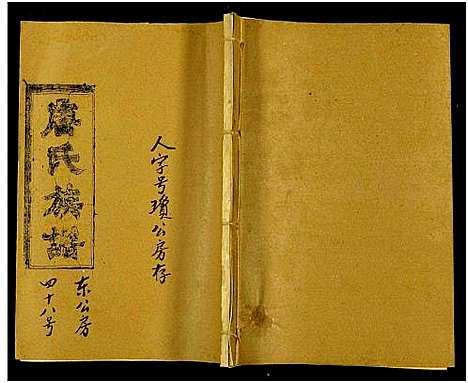 唐氏族譜
人字号瓊公房存
东公房
四十八号